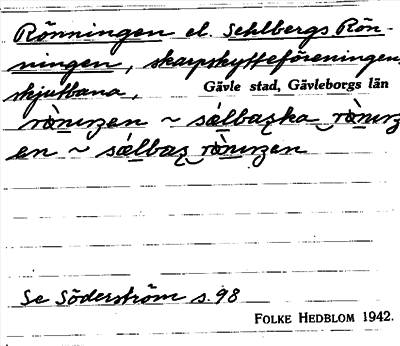 Rönningen el. Sehlbergs Rön-
ningen, skarpskytteföreningens
skjutbana, Gävle stad, Gävleborgs län
rònıŋen ~ sélbaʂka ‿ rònıŋ
en ~ sélbaʂ ‿ rònıŋen
Se Söderström s. 98
FOLKE HEDBLOM 1942.